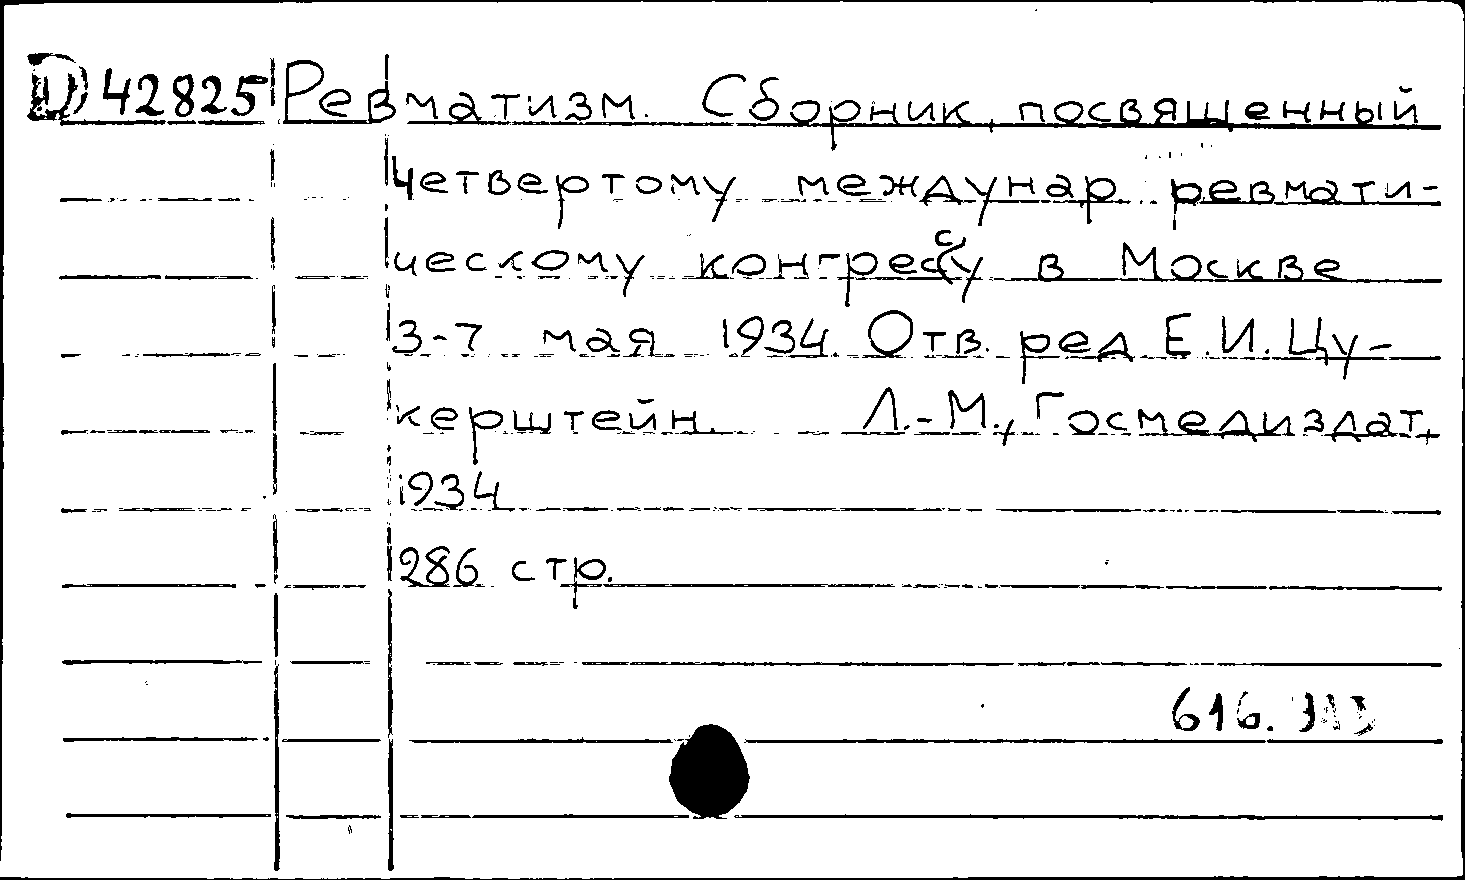 D 42825 Ревматизм. Сборник, посвященный
четвертому междунар. ревмати-
ческому конгрессу в Москве
3-7 мая 1934. Отв. ред. Е.И. Цу-
керштейн. Л.-М., Госмедиздат,
1934
286 стр.